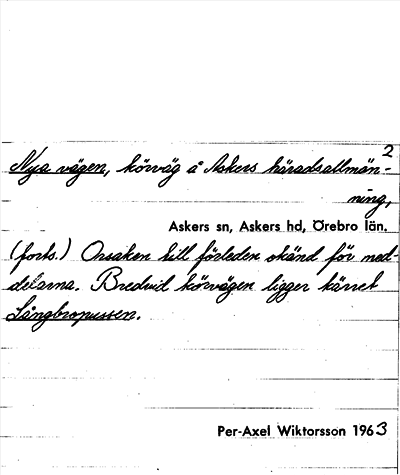 2
Nya vägen, körväg å Askers häradsallmän-
ning,
Askers sn, Askers hd, Örebro län.
(forts.) Orsaken till förleden okänd för med-
delarna. Bredvid körvägen ligger kärret
Långbropussen.
Per-Axel Wiktorsson 1963